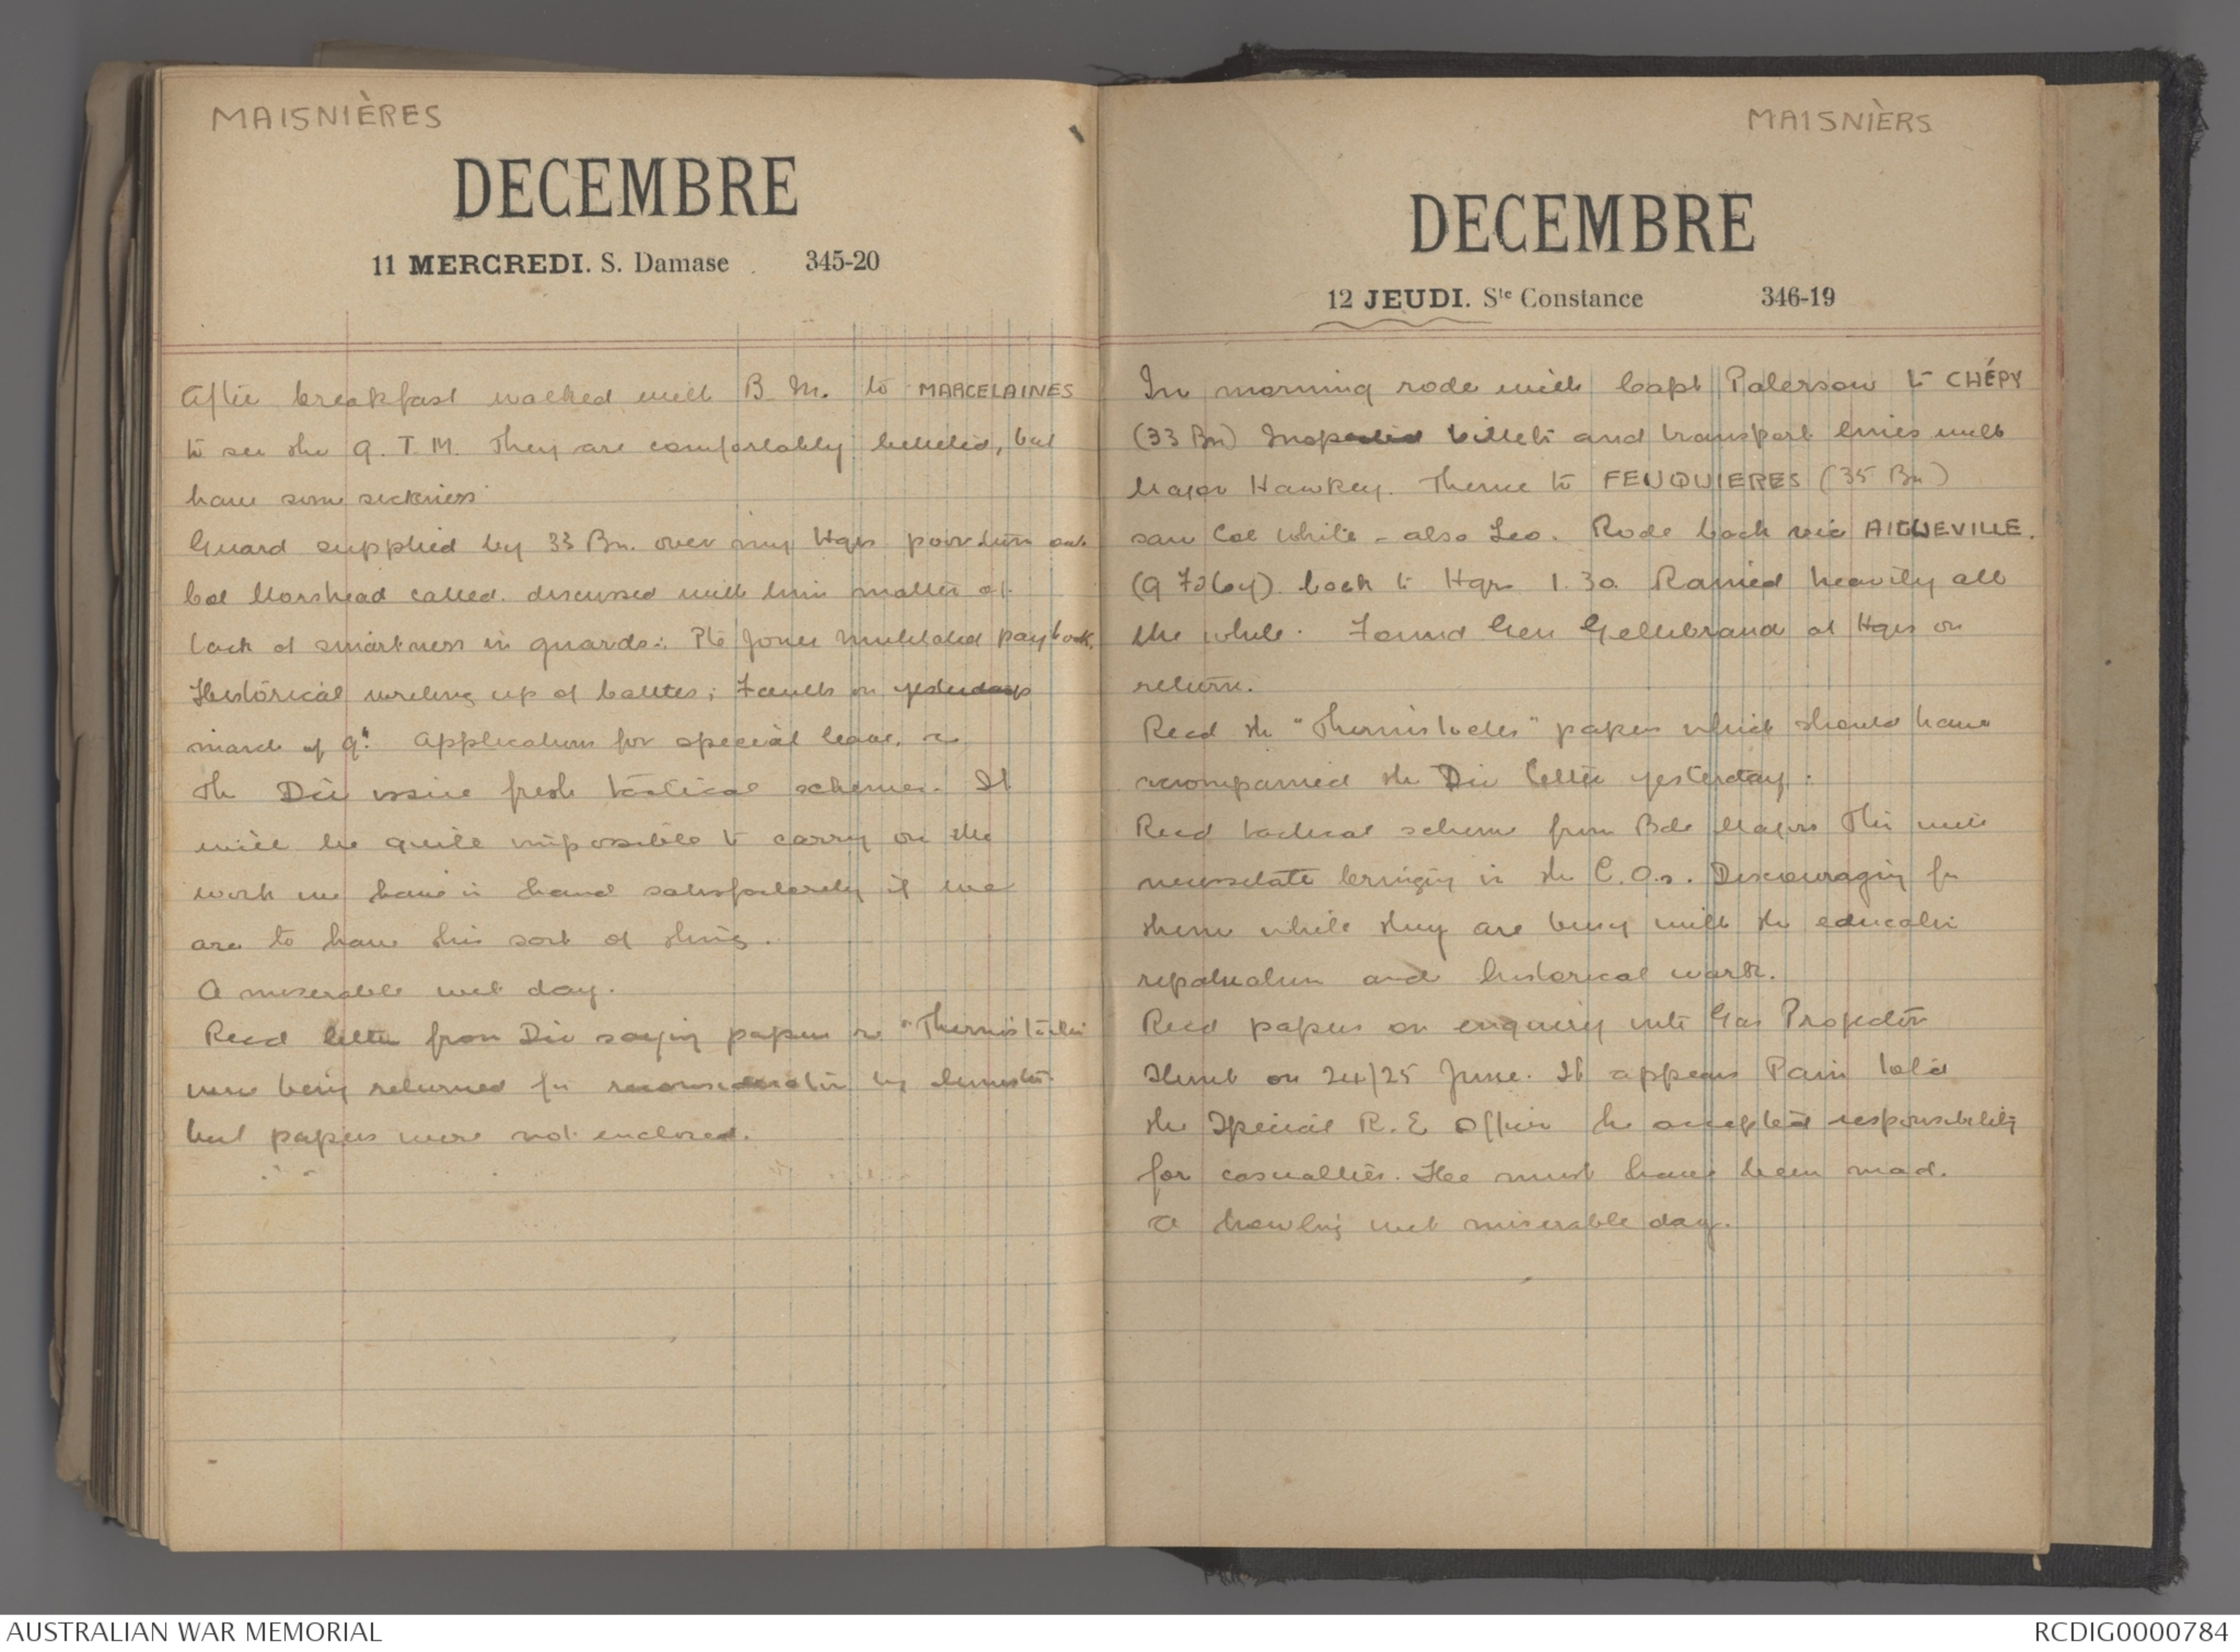 MAISNIÈRES
DECEMBRE
11 MERCREDI. S. Damase 345-20
After breakfast walked with B M. to MARCELAINES
to see the 9. T. M. They are comfortably billeted, but
have some sickness
Guard supplied by 33 Bn. over my Hqrs poor turn out.
Col Morshead called. discussed with him matter of
lack of smartness in guards: Pte Jones mutilated paybook,
Historical writing up of battles; Faults on yesterdays
march of 9th. Applications for special leave.
The Div issue fresh tactical schemes. It
will be quite impossible to carry on the
work we have in hand satisfactorily if we
are to have this sort of thing.
A miserable wet day.
Recd letter from Div saying papers re "Themistocles
were being returned for reconsideration by
but papers were not enclosed.
MAISNIÈRS
DECEMBRE
12 JEUDI. Ste Constance 346-19
In morning rode with Capt Paterson to CHÉPY
(33 Bn) Inspected billets and transport lines with
Major Hawkey. Thence to FEUQUIERES (35 Bn)
saw Col White - also Leo. Rode back via AIGNEVILLE.
(9 Fd Coy). back to Hqrs 1.30. Rained heavily all
the while. Found Gen Gellibrand at Hqrs on
return.
Recd the "Themistocles" papers which should have
accompanied the Div letter yesterday.
Recd tactical scheme from Bde Majors This will
necessitate bringing in the C.O.s. Discouraging for
them while they are busy with the education
repatriation and historical work.
Recd papers on enquiry into Gas Projector
Stunt on 24/25 June. It appears Pain told
the Special R.E Officer he accepted responsibility
for casualties. He must have been mad.
A howling wet miserable day.
AUSTRALIAN WAR MEMORIAL
RCDIG0000784